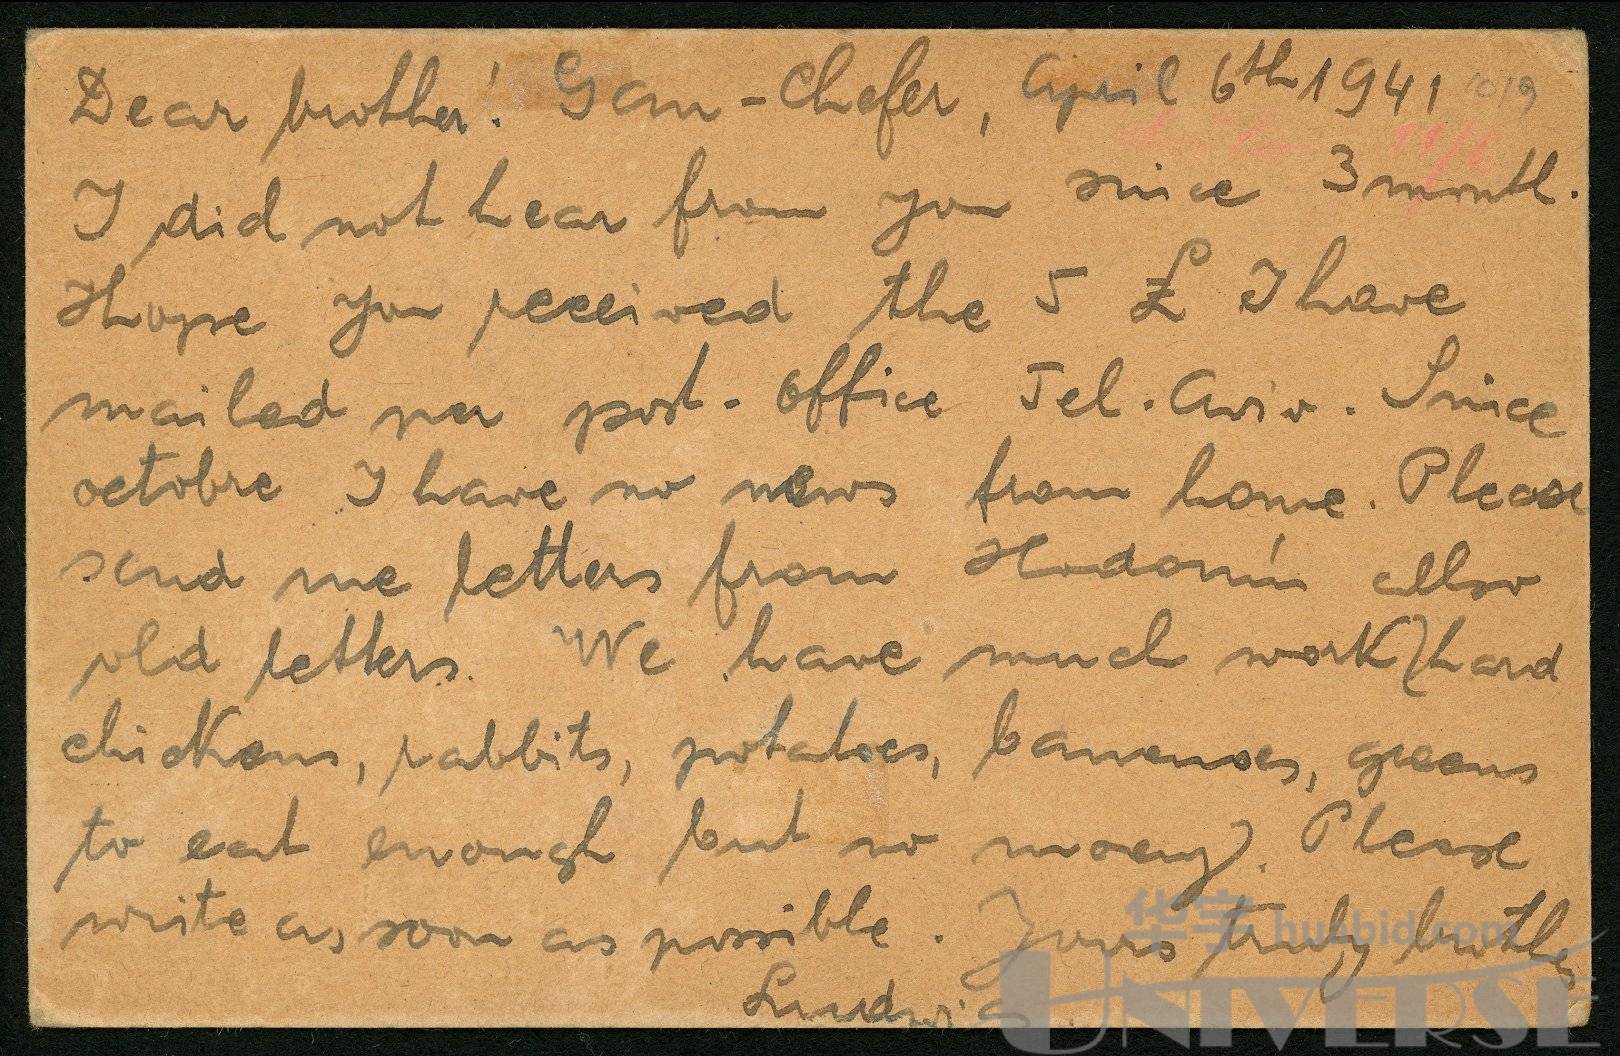 Dear brother! Gan-Chefer, April 6th 1941
I did not hear from you since 3 month.
Ihope you received the 5 £ I have
mailed per post-office Tel.Aviv. Since
octobre I have no news from home. Please
send me letters from Hodonín allso
old letters. We have much work (hard
chickens, rabbits, potatoes, bananoes, greens
to eat enough but no moeny). Please
write as soon as possible. Yours truly brother
Ludwig.
华宇 huabid.com
UNIVERSE